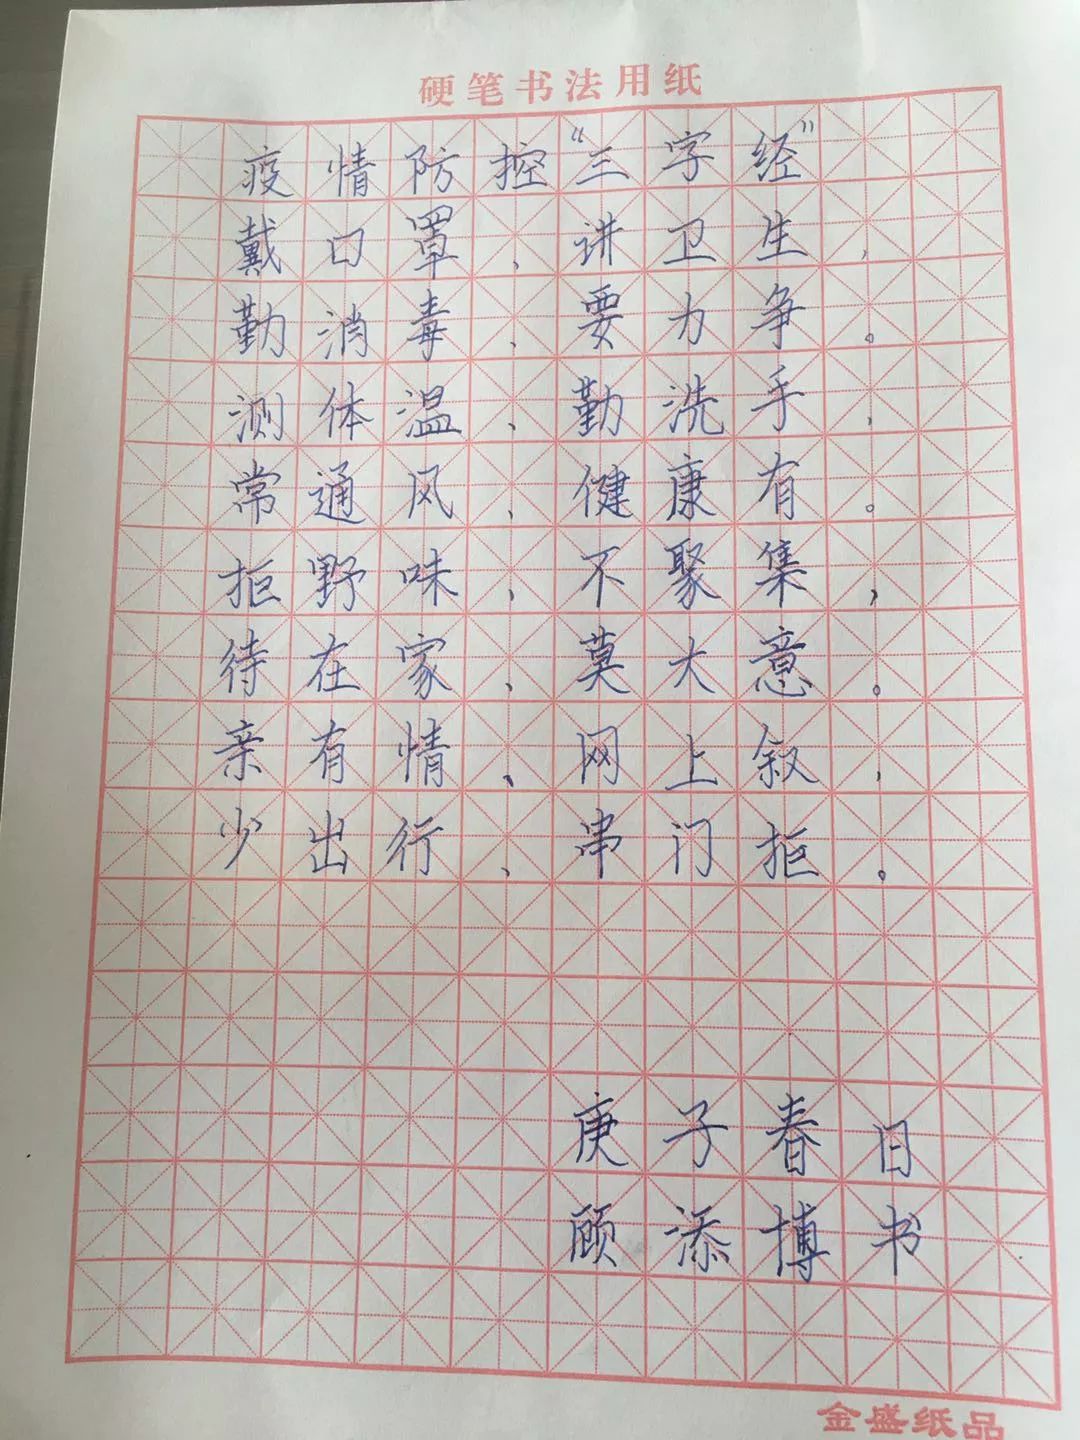 硬笔书法用纸
疫情防控“三字经”
戴口罩、讲卫生，
勤消毒、要力争。
测体温、勤洗手，
常通风、健康有。
拒野味、不聚集，
待在家、莫大意。
亲有情、网上叙，
少出行、串门拒。
庚子春日
顾添博书
金盛纸品